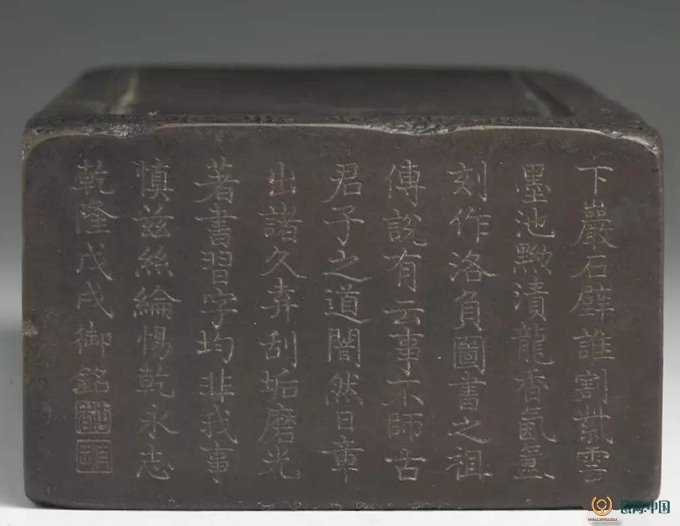 下巖石壁誰割紫雲
墨池黝漬龍香氤氳
刻作洛負圖書之祖
傳說有云事不師古
君子之道闇然日章
出諸久弆刮垢磨光
著書習字均非我事
慎茲絲綸惕乾永志
乾隆戊戌御銘
中国